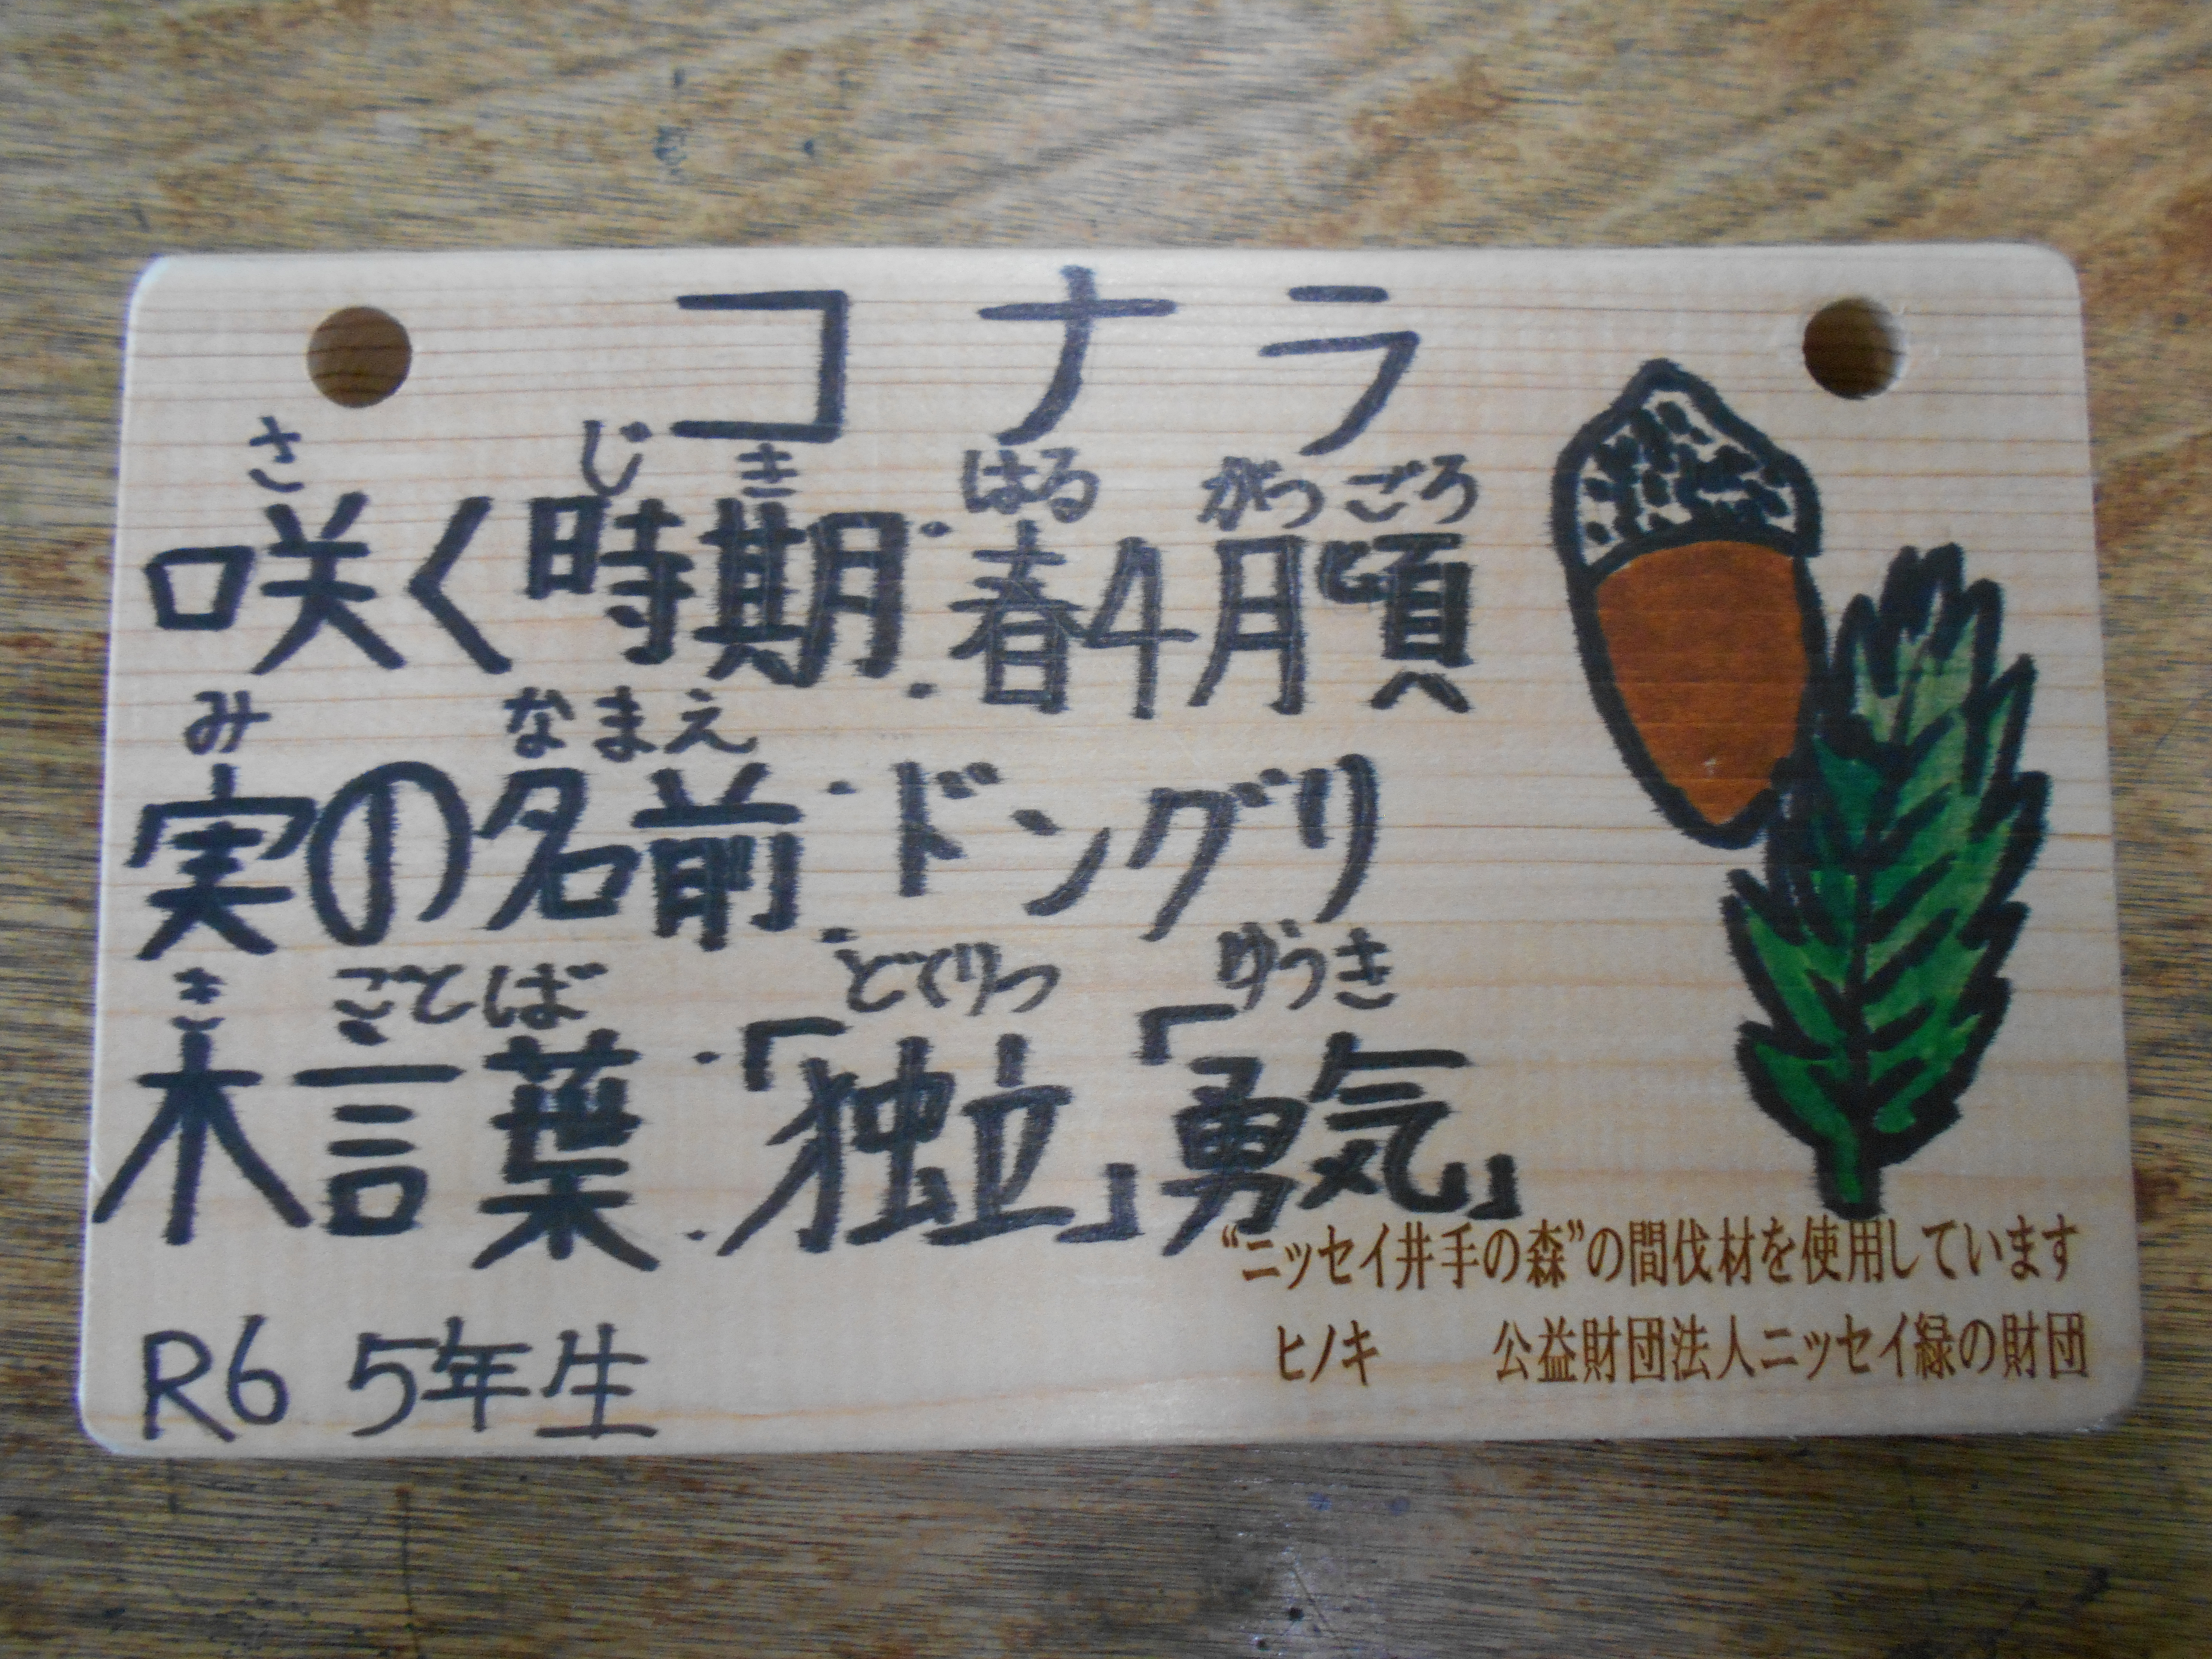 コナラ
さ じ き はる がつ ごろ
咲く時期:春4月頃
み なまえ
実の名前:ドングリ
き ことば どくりつ ゆうき
木言葉:「独立」「勇気」
R6 5年生
“ニッセイ井手の森”の間伐材を使用しています
ヒノキ 公益財団法人ニッセイ緑の財団